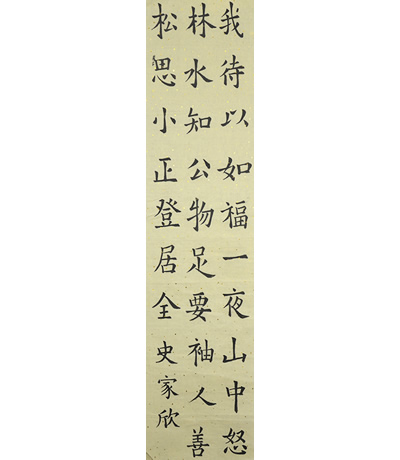 我待以如福一夜山中怒
林水知公物足要袖人善
松思小正登居全史家欣